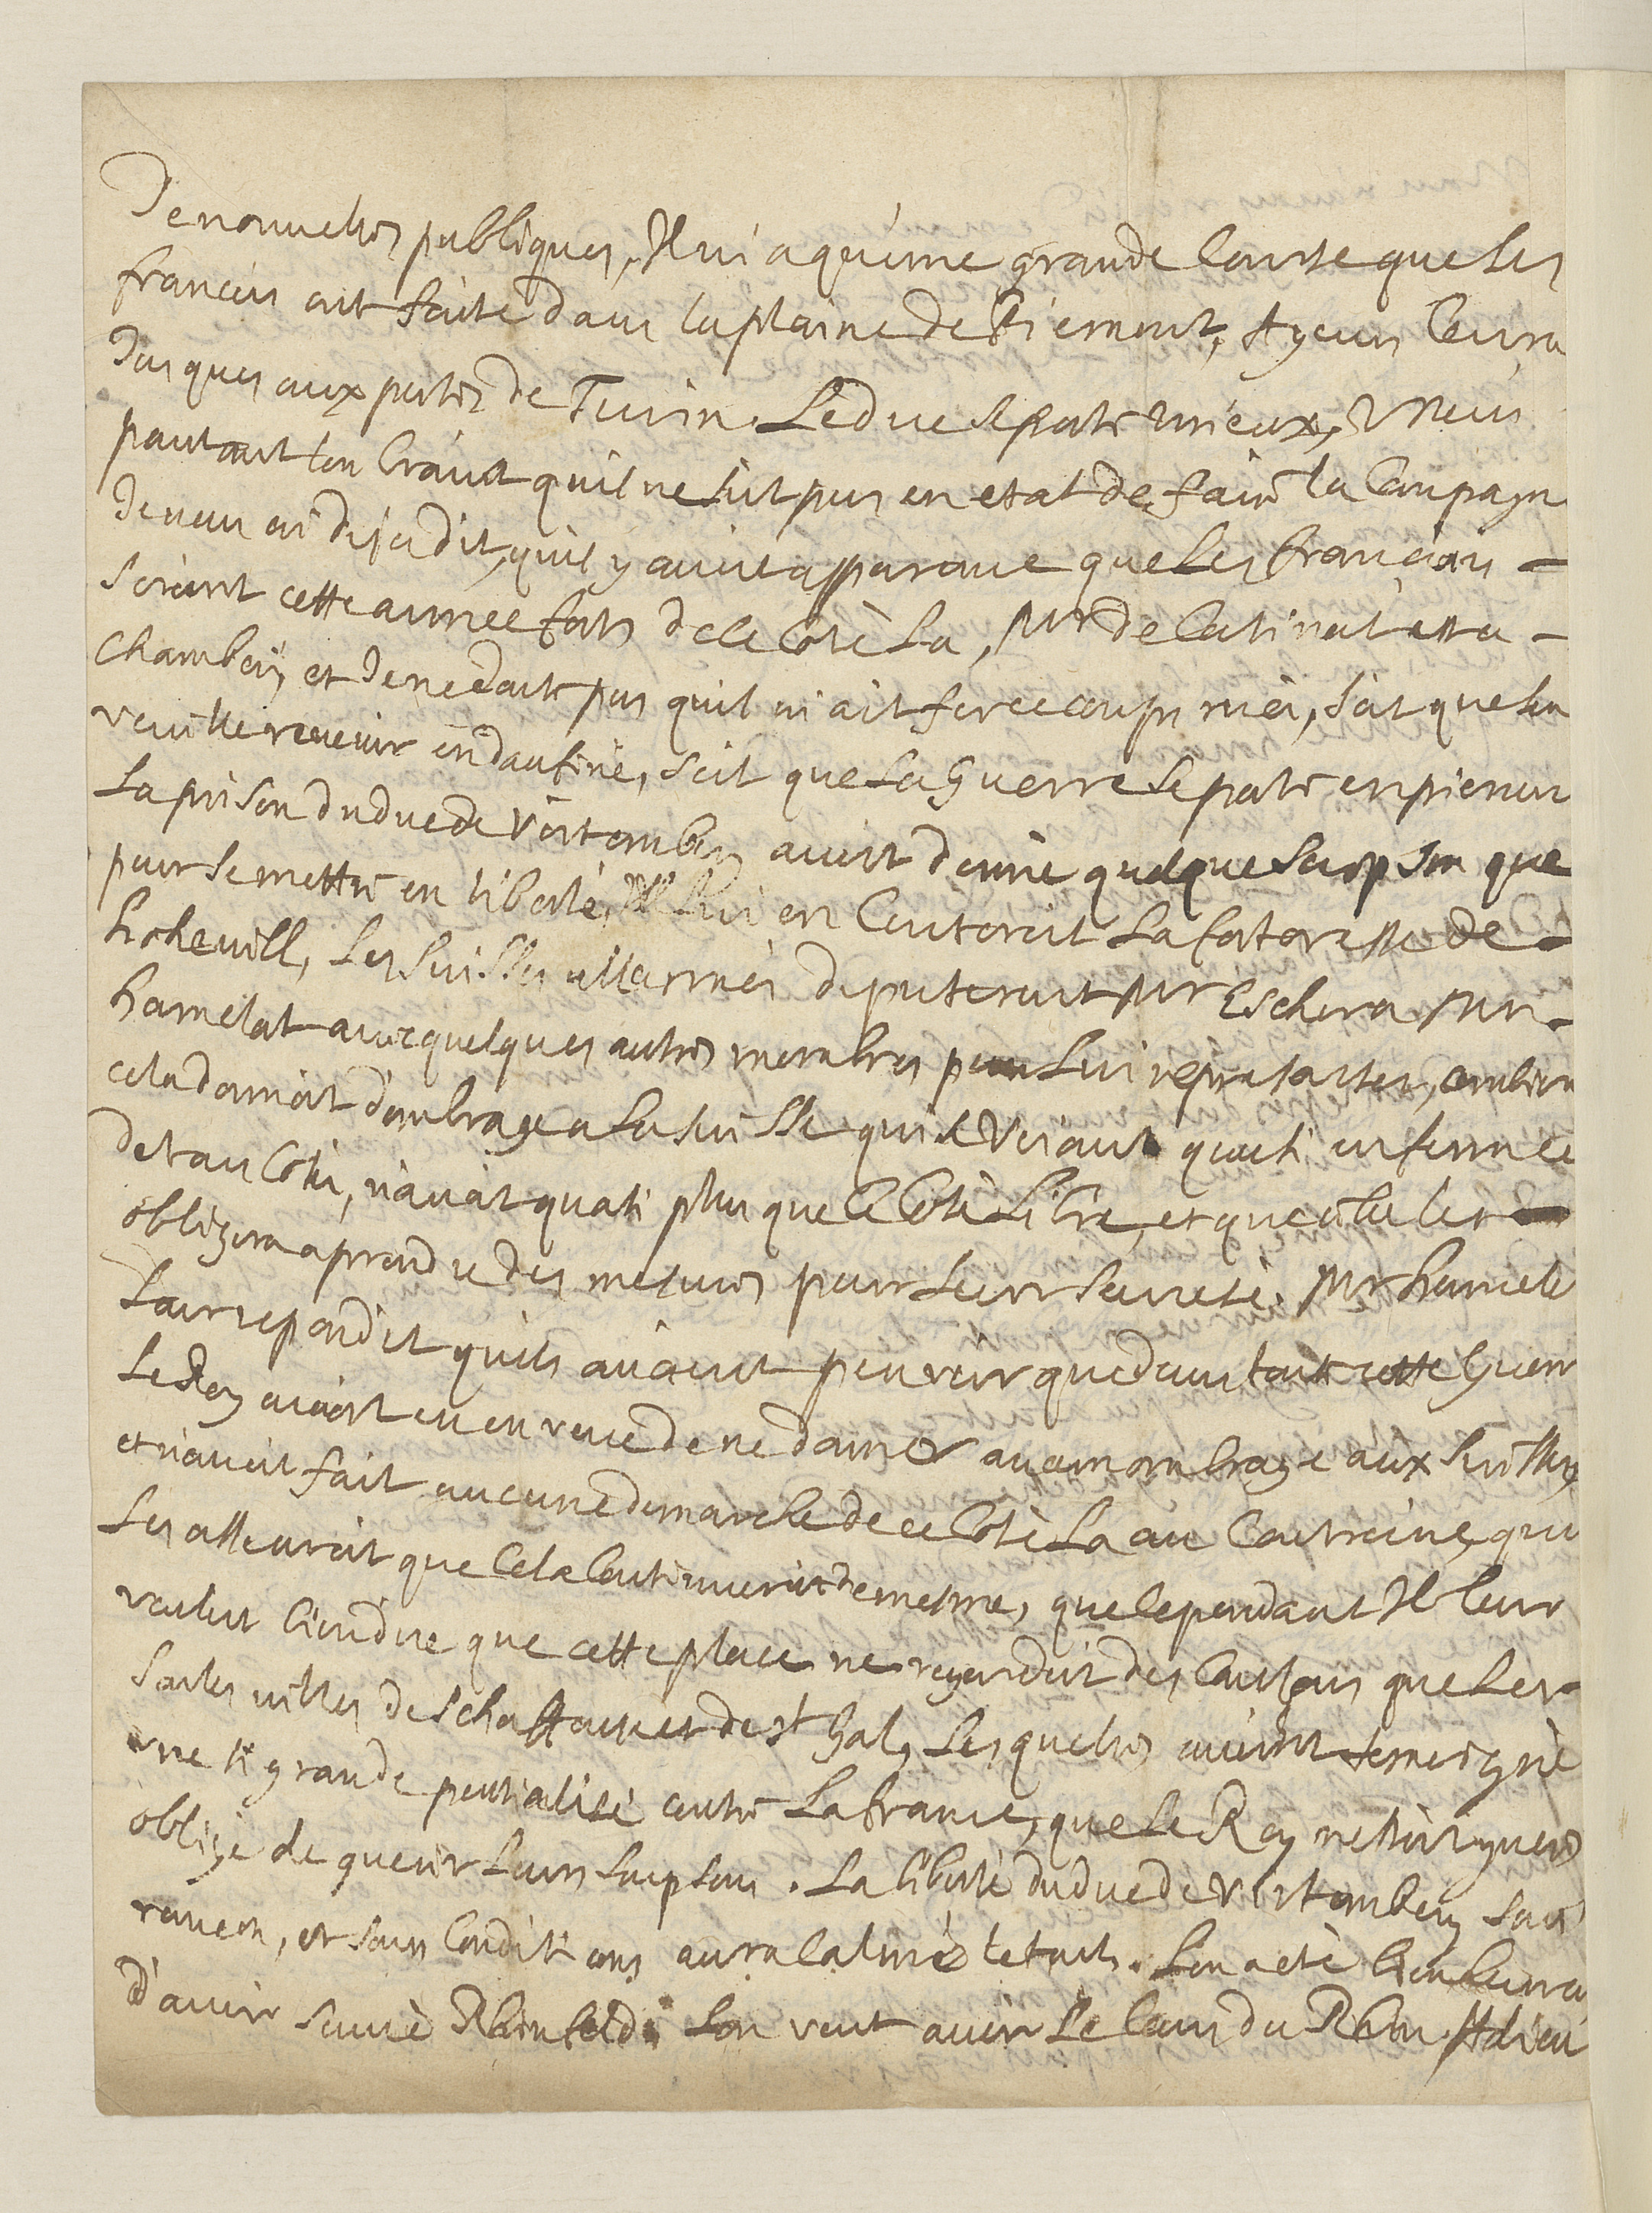 De nouvelles publiques, Il ni a qu'une grande Course que les
francois ont faite dans la plaine de Piemont, Ayans Couru
Jusques aux portes de Turin. Le duc se porte mieux,
pourtant lon Craint quil ne soit pas en etat de faire la Campagn
Je vous ai deja dit, quil y avoit apparance que les francois
seroient cette année forts de ce Coté la, Mr de Catinat est a
Chambery, et Je ne doute pas quil ni ait force coups rués, soit que lon
veuille revenir en daufiné, soit que la Guerre se porte en piemon
La prison du duc de Virtemberg avoit donné quelque soupson que
pour se mettre en liberté, Il lui en Couteroit la forteresse de
hohewill, Les Suisses allarmés deputerent Mr Escher a Mr
hamelot avec quelques autres membres pour lui representer, combien
cela donnoit dombrage a la Suisse qui se voiant quasi enfermée
de tous Cotés, n'avoit quasi plus que ce Coté Libre, et que cela les
obligera a prendre des mesures pour leur seureté. Mr hamelot
Leur repondit quils avoient peu voir que dans toute cette Guerre
Le Roy avoit eu en veue de ne donner aucun ombrage aux Suisses
et n'avoit fait aucune demarche de ce Coté La au Contraire, qu
les asseuroit que Cela Continueroit de mesme, que Cependant Il leur
vouloit dire que cette place ne regardoit des Cantons que les
seules villes de Schaffouse et de St Gal, Lesquelles avoient temoigné
une si grande partialité contre La france, que le Roy nestoit gueres
obligé de guerir leurs soupsons. La liberté du duc de Virtemberg sans
rancon, et sans Conditions aura calmé le tout. Lon a eté bien heureu
d'avoir sauvé Rhinfeld. Lon veut avoir le Cours du Rhin. Adieu